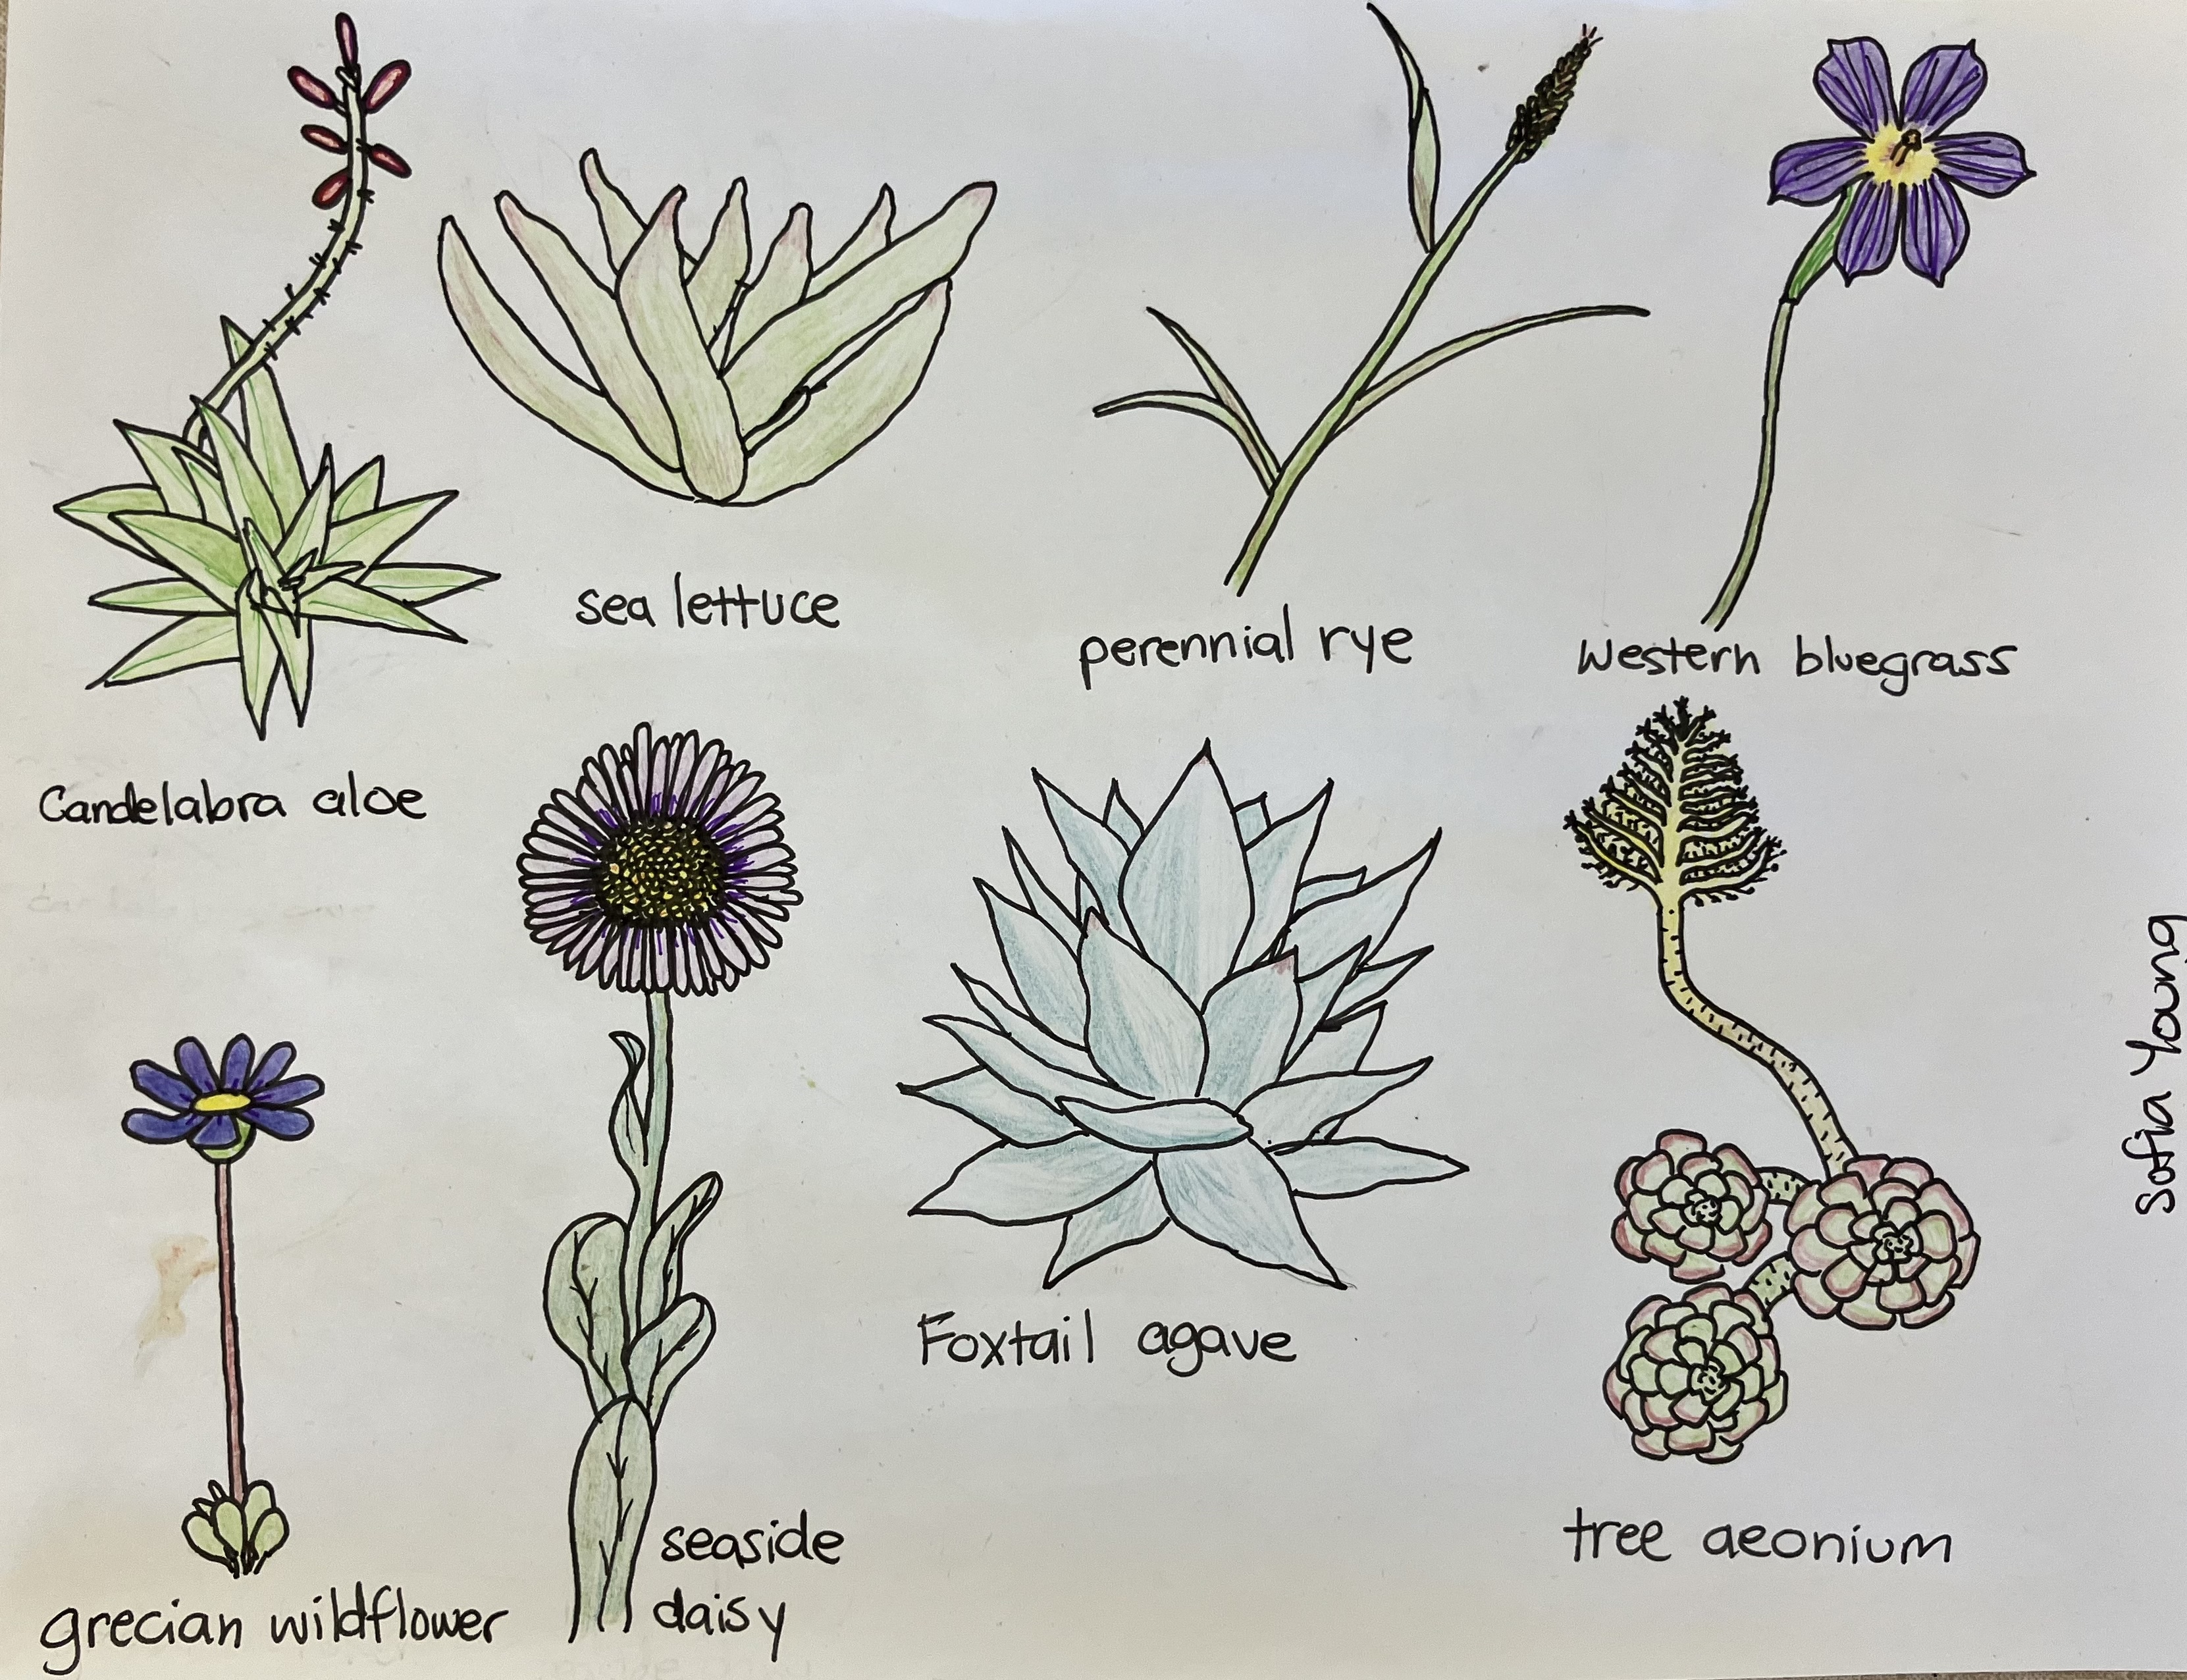 sea lettuce
perennial rye
Western bluegrass
Candelabra aloe
Foxtail agave
seaside
daisy
tree aeonium
grecian wildflower
Sofia Young